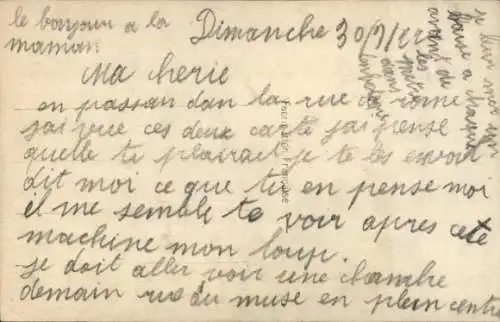 le bonjour a la
maman
Dimanche 30/7/22
Ma cherie
en passan dan la rue de rome
jai vue ces deux carte jai pense
quelle ti plairait je te les envoir
dit moi ce que tu en pense moi
il me semble te voir apres cete
machine mon loup.
je doit aller voir une chambre
demain rue du muse en plein centre
baise a chaque
avant de
les
dans
Fabrication Française